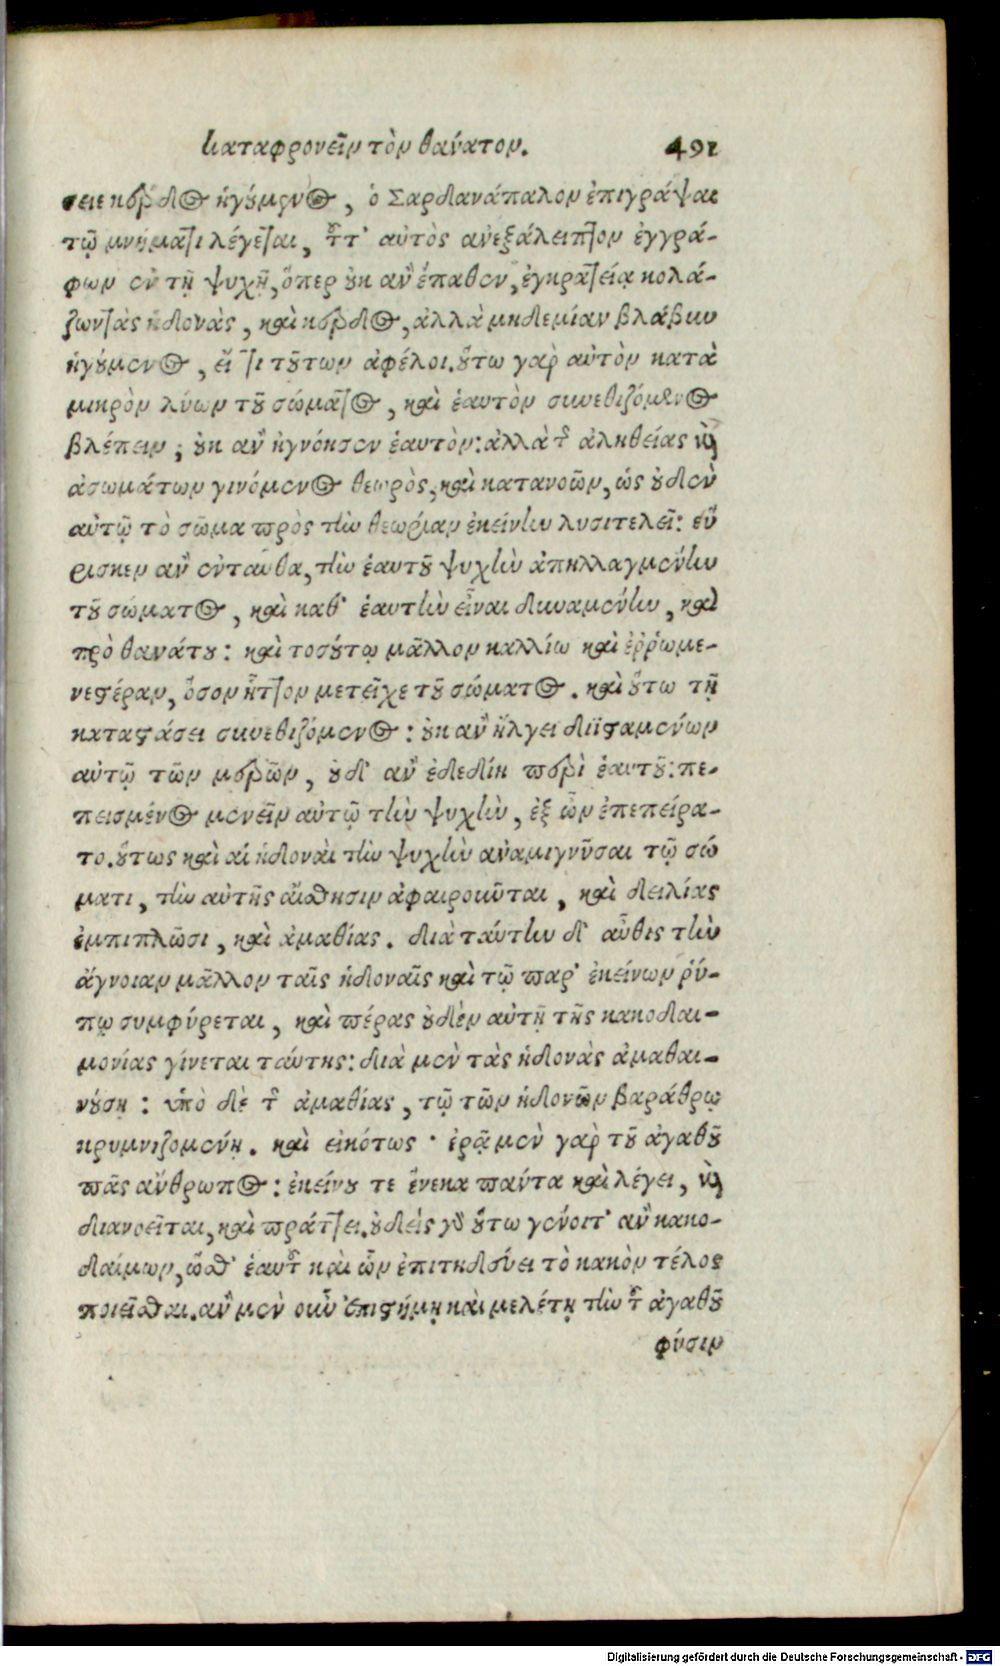 καταφρονεῖν τὸν θάνατον. 491
σειε κέρδος ἡγούμενος, ὁ Σαρδανάπαλον ἐπιγράψαι
τῷ μνήματι λέγεται, τοῦτ' αὐτὸς ἀνεξάλειπτον ἐγγρά-
φων ἐν τῇ ψυχῇ, ὅπερ οὐκ ἂν ἔπαθεν, ἐγκρατείᾳ κολά-
ζων τὰς ἡδονὰς, καὶ κέρδος, ἀλλὰ μηδεμίαν βλάβην
ἡγούμενος, εἴ τι τούτων ἀφέλοι. οὕτω γὰρ αὐτὸν κατὰ
μικρὸν λύων τοῦ σώματος, καὶ ἑαυτὸν συνεθιζόμενος
βλέπειν, οὐκ ἂν ἠγνόησεν ἑαυτὸν: ἀλλὰ τῆς ἀληθείας καὶ
ἀσωμάτων γινόμενος θεωρὸς, καὶ κατανοῶν, ὡς οὐδὲν
αὐτῷ τὸ σῶμα πρὸς τὴν θεωρίαν ἐκείνην λυσιτελεῖ: εὕ
ρισκεν ἂν ἐνταῦθα, τὴν ἑαυτοῦ ψυχὴν ἀπηλλαγμένην
τοῦ σώματος, καὶ καθ' ἑαυτὴν εἶναι δυναμένην, καὶ
πρὸ θανάτου: καὶ τοσούτῳ μᾶλλον καλλίω καὶ ἐῤῥωμε-
νεστέραν, ὅσον ἧττον μετεῖχε τοῦ σώματος. καὶ οὕτω τῇ
καταστάσει συνεθιζόμενος: οὐκ ἂν ἤλγει διϊσταμένων
αὐτῷ τῶν μερῶν, οὐδ' ἂν ἐδεδίη περὶ ἑαυτοῦ: πε-
πεισμένος μενεῖν αὐτῷ τὴν ψυχὴν, ἐξ ὧν ἐπεπείρα-
το. οὕτως καὶ αἱ ἡδοναὶ τὴν ψυχὴν ἀναμιγνῦσαι τῷ σώ
ματι, τὴν αὐτῆς αἴσθησιν ἀφαιροῦνται, καὶ δειλίας
ἐμπιπλῶσι, καὶ ἀμαθίας. διὰ ταύτην δ' αὖθις τὴν
ἄγνοιαν μᾶλλον ταῖς ἡδοναῖς καὶ τῷ παρ' ἐκείνων ῥύ-
πῳ συμφύρεται, καὶ πέρας οὐδὲν αὐτῇ τῆς κακοδαι-
μονίας γίνεται ταύτης: διὰ μὲν τὰς ἡδονὰς ἀμαθαι-
νούσῃ: ὑπὸ δὲ τῆς ἀμαθίας, τῷ τῶν ἡδονῶν βαράθρῳ
κρημνιζομένῃ. καὶ εἰκότως· ἐρᾷ μὲν γὰρ τοῦ ἀγαθοῦ
πᾶς ἄνθρωπος: ἐκείνου τε ἕνεκα πάντα καὶ λέγει, καὶ
διανοεῖται, καὶ πράττει. οὐδεὶς γὰρ οὕτω γένοιτ' ἂν κακο-
δαίμων, ὥσθ' ἑαυτοῦ καὶ ὧν ἐπιτηδεύει τὸ κακὸν τέλος
ποιεῖσθαι. ἂν μὲν οὖν ἐπιστήμῃ καὶ μελέτῃ τὴν τοῦ ἀγαθοῦ
φύσιν
Digitalisierung gefördert durch die Deutsche Forschungsgemeinschaft - DFG